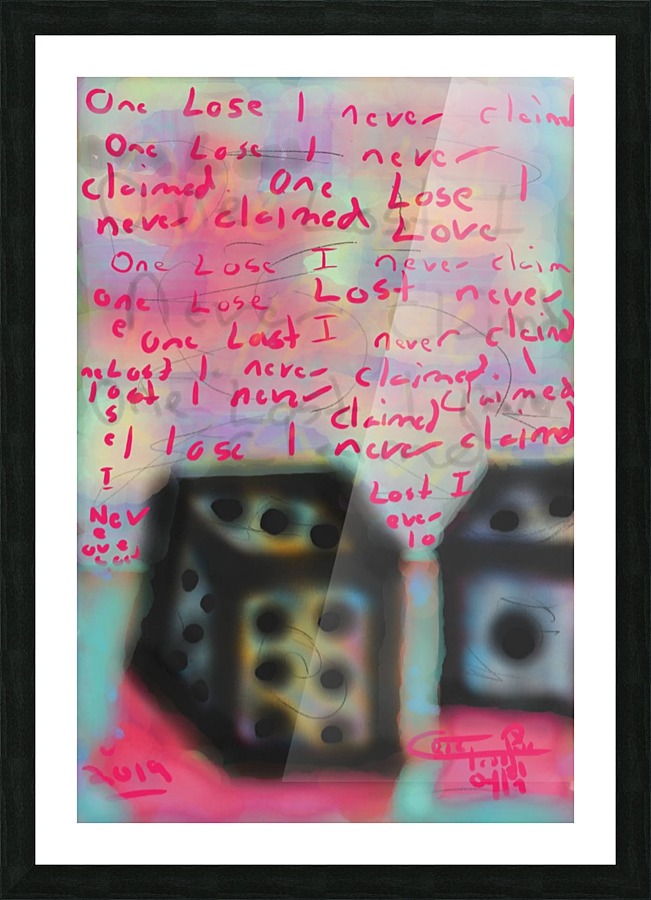 One Lose I never claimd
One Lose I never
claimed. One Lose I
never claimed Love
One Lose I never claim
One Lose Lost never
e one Last I never claimd
neLost I never claimed. I
lost I never claimed
o claimed
s
e I lose I never claimd
I
Lost I
Nev ever
e
lo
2019